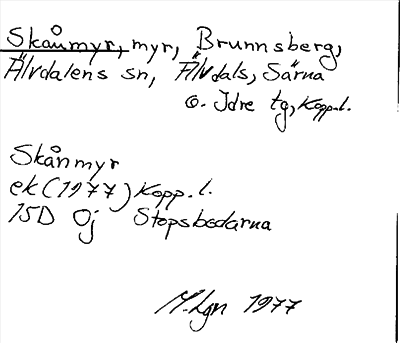 Skånmyr, myr, Brunnsberg,
Älvdalens sn, Älvdals, Särna
o. Idre tg, Kopp. l.
Skånmyr
ek (1977) Kopp. l.
15D 0j Stopsbodarna
M. Lgn 1977